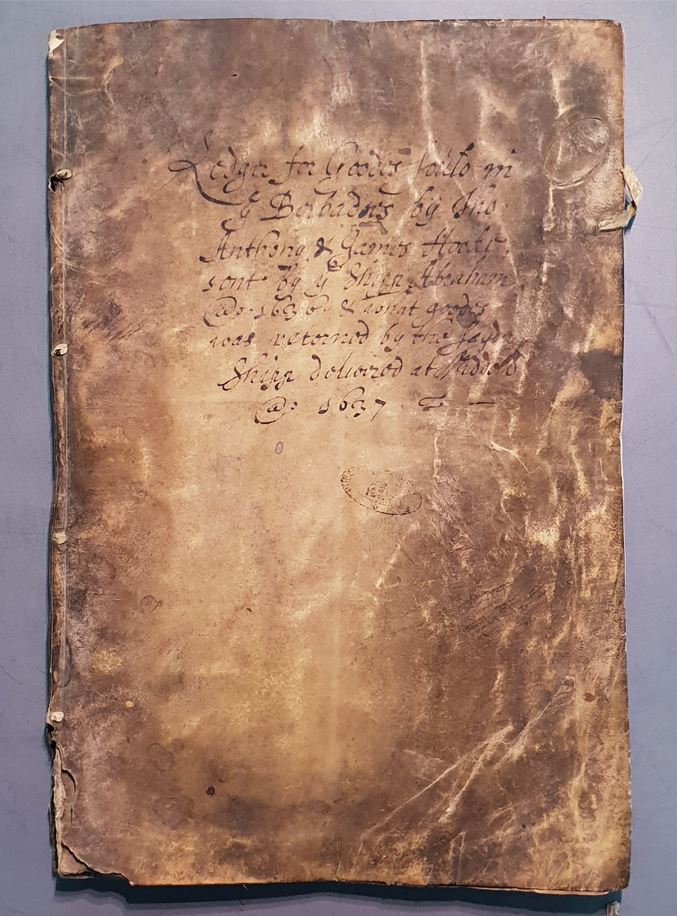 Ledger for Goodes sould in
yͤ Barbadns by Tho
Anthony & James Hoake
sent by yͤ Shipp Abraham
@o 1636 & what goodes
was retorned by the sayd
Shipp delivered at
@o 1637